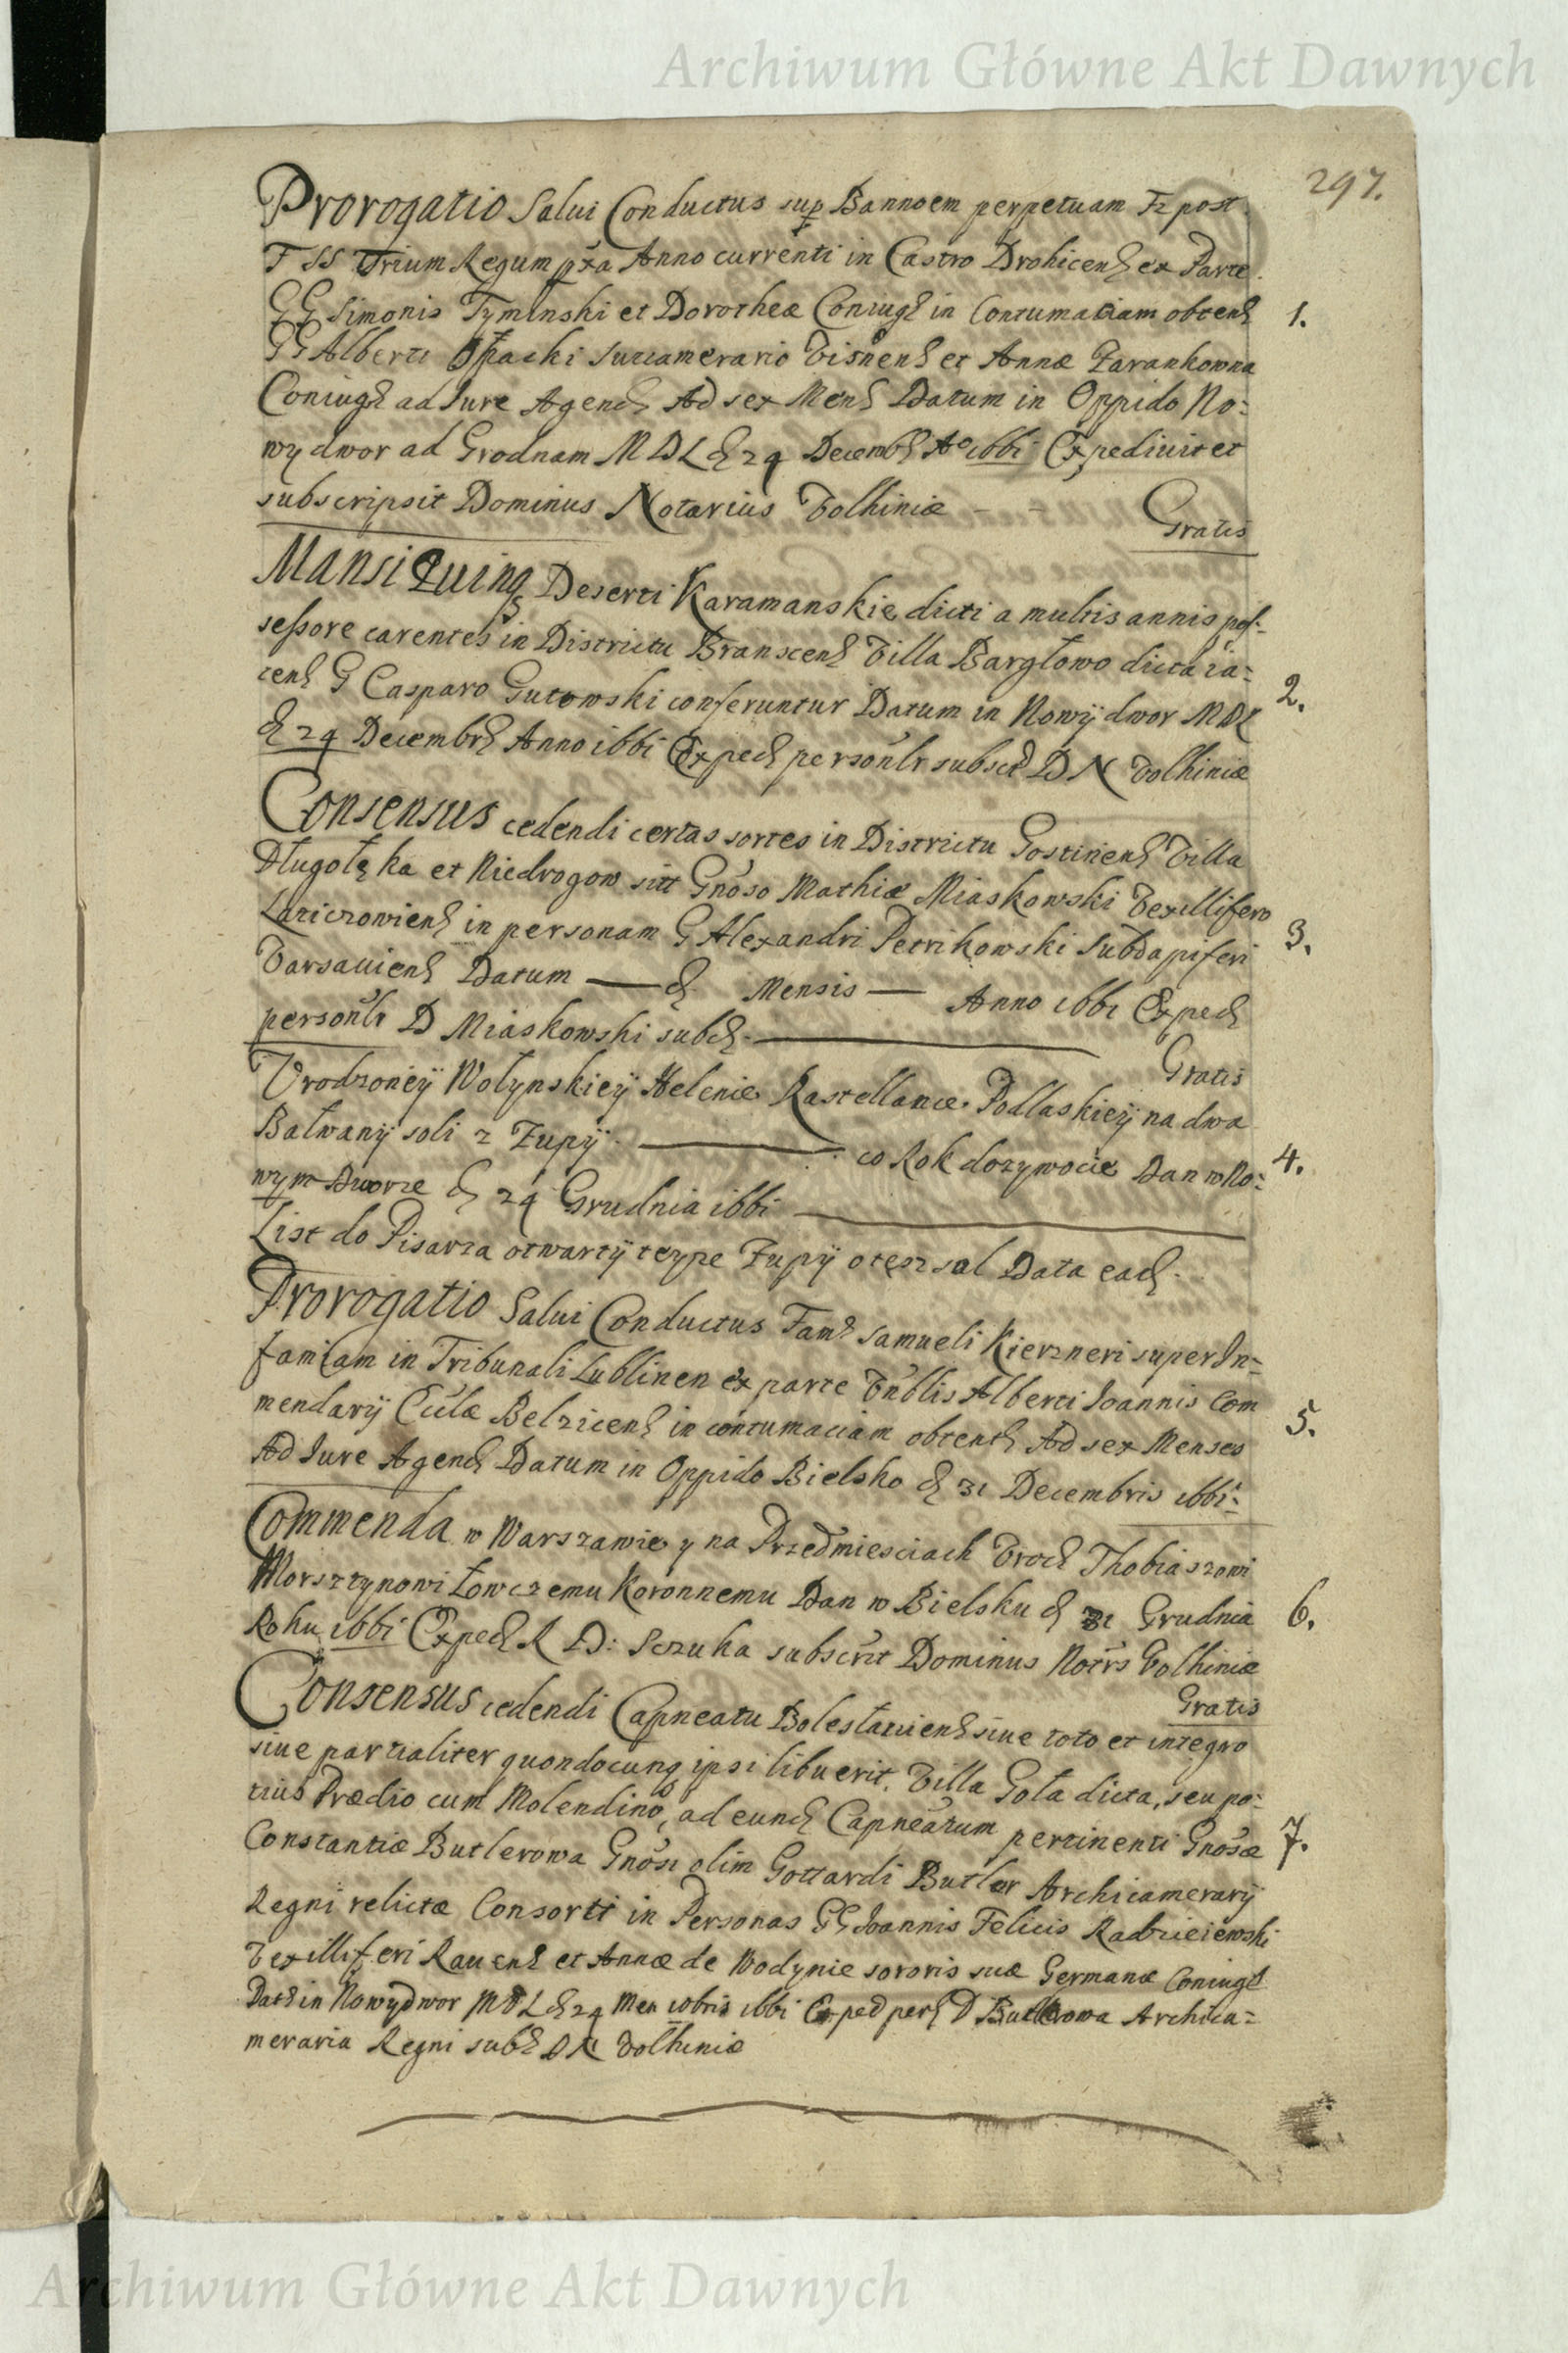 Archiwum Główne Akt Dawnych
297.
Prorogatio Salui Conductus sup Bannoem perpetuam Fz post
F SS Trium Regum pxa Anno currenti in Castro Drohicens ex Parte
GG Simonis Tyminski et Dorotheæ Coniugs in Contumatiam obtens 1.
GG Alberti Opacki Succamerario Visnens et Annæ Zarankowna
Coniugs ad Iure Agend Ad sex Mens Datum in Oppido No:
wydwor ad Grodnam MDL d 24 Decemb Ao 1661 Expediuit et
subscripsit Dominus Notarius Volhiniæ - - Gratis
Mansi Quinq Deserti Karamanskie dicti a multis annis pos:
sessore carentes in Districtu Branscens Villa Bargłowo dicta ia:
cens G Casparo Gutowski conferuntur Datum in Nowÿ dwor MDL 2.
d 24 Decembrs Anno 1661 Exped personlr subsct D N Volhiniæ
Consensus cedendi certas sortes in Districtu Gostinens Villa
Długołęka et Niedrogow sitt Gnoso Mathiæ Miaskowski Vexillifero
Laticzowiens in personam G Alexandri Petrikowski Subdapiferi 3.
Varsauiens Datum — d Mensis — Anno 1661 Exped
personlr D Miaskowski subs. — Gratis
Vrodzoneÿ Wolynskieÿ Helenie Kastellance Podlaskieÿ na dwa
Bałwanÿ soli z Zupÿ — co Rok dozywocie Dan w No: 4.
wym Dworze d 24 Grudnia 1661 —
List do Pisarza otwartÿ teyze Zupÿ o tęsz sal Data ead.
Prorogatio Salui Conductus Fams Samueli Kierzneri super In:
famiam in Tribunali Lublinen ex parte Vnblis Alberti Ioannis Com
mendarÿ Ecclæ Belzicens in contumaciam obtent Ad sex Menses 5.
Ad Iure Agend Datum in Oppido Bielsko d 31 Decembris 1661:
Commenda w Warszawie y na Przedmiesciach Vrod Thobiaszowi
Morsztynowi Łowczemu Koronnemu Dan w Bielsku d 31 Grudnia 6.
Roku 1661 Exped R D: Sczuka subscrt Dominus Notrs Volhiniæ
Gratis
Consensus cedendi Capneatu Bolesłauiens siue toto et integro
siue partialiter quondocunq ipsi libuerit. Villa Gola dicta, seu po:
tius Prædio cum Molendino, ad eund Capneatum pertinenti Gnosæ 7.
Constantiæ Butlerowa Gnosi olim Gottardi Butler Archicamerarÿ
Regni relictæ Consorti in Personas GG Ioannis Felicis Radzieiewski
Vexilliferi Rauens et Annæ de Wodynie sororis suæ Germanæ Coniugs
Dat in Nowydwor MDL d 24 Men xbris 1661 Exped pers D Butlerowa Archica:
meraria Regni subs D N Volhiniæ
Archiwum Główne Akt Dawnych